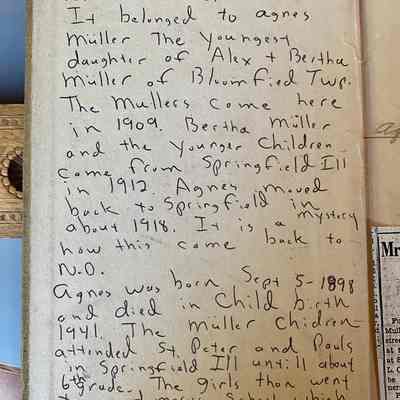 It belonged to agnes
müller The youngest
daughter of Alex + Bertha
Müller of Bloomfied Twp.
The Mullers come here
in 1909. Bertha müller
and the younger Children
come from Springfield Ill
in 1912. Agnes moved
back to Springfield in
about 1918. It is a mystery
how this come back to
N.D.
agnes was born Sept 5-1898
and died in Child birth
1941. The müller Chidren
attended St. Peter and Pauls
in Springfield Ill untill about
6th grade. The girls then went
Mr